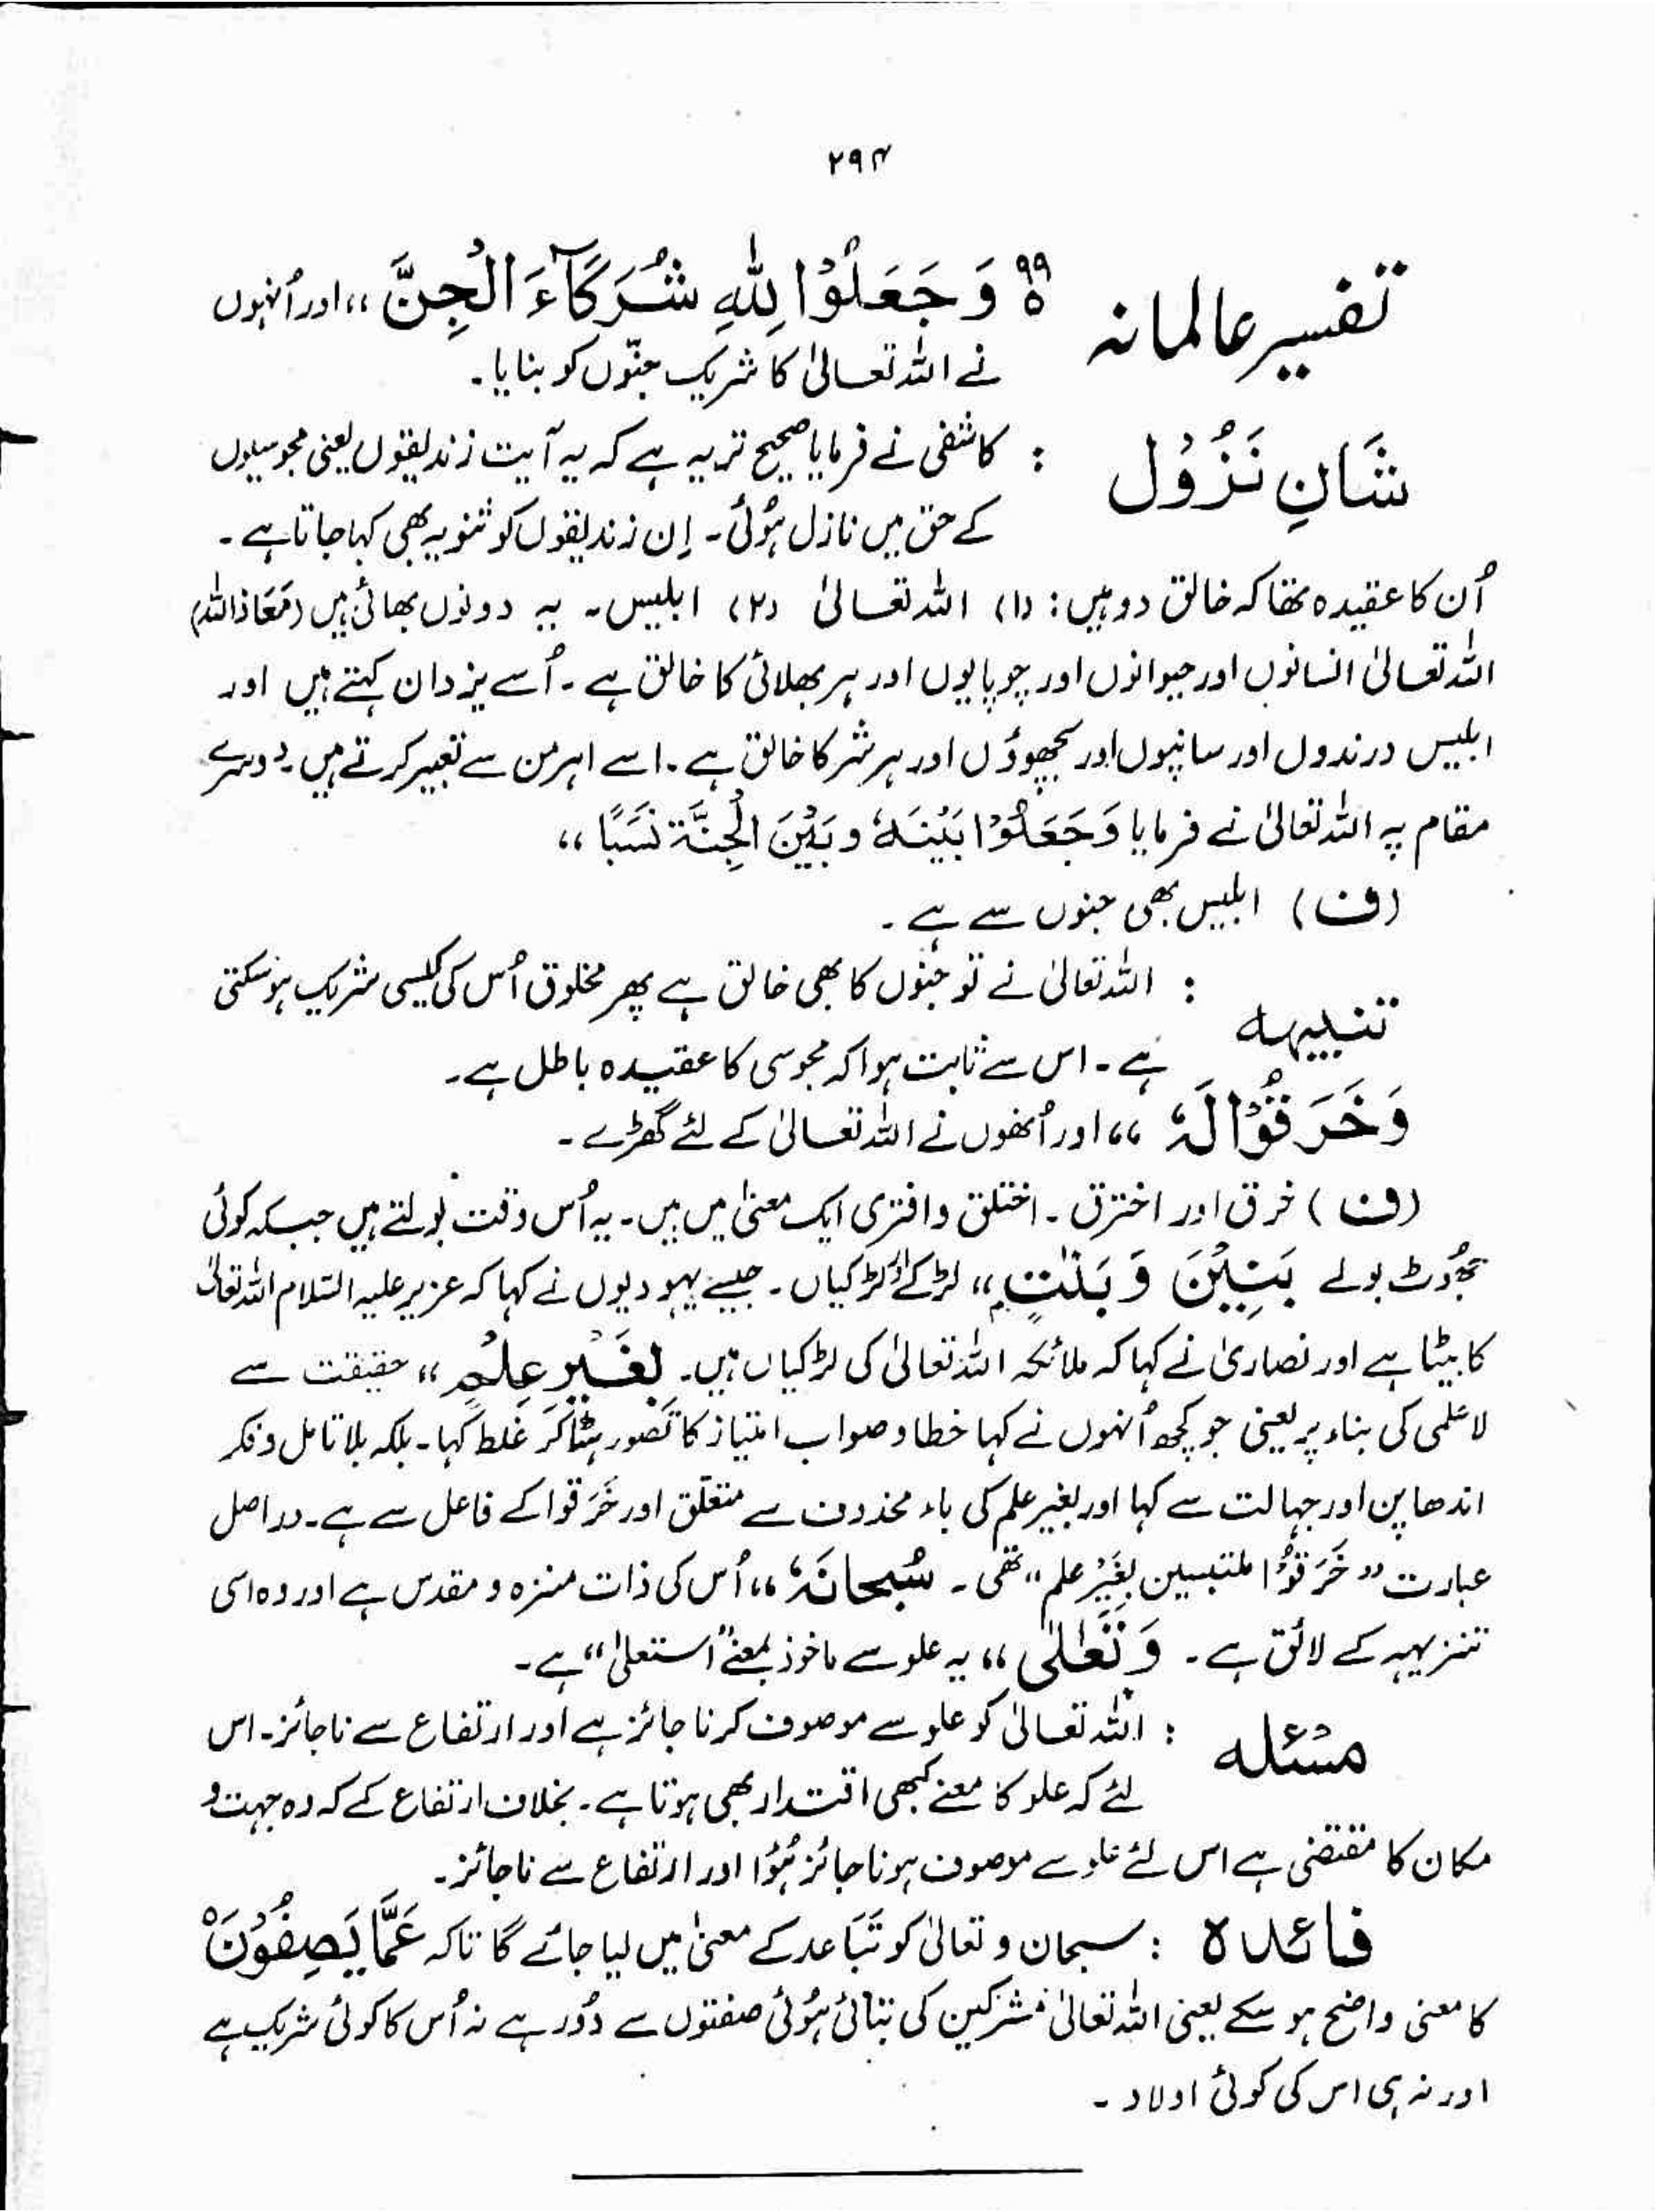 ۲۹۴
تفسیر عالمانہ ۹۹ وَجَعَلُوْا لِلّٰہِ شُرَکَآءَ الْجِنَّ ،، اور اُنہوں
نے اللہ تعالیٰ کا شریک جنّوں کو بنایا۔
شَانِ نَزُوْل : کاشفی نے فرمایا صحیح تر یہ ہے کہ یہ آیت زندیقوں یعنی مجوسیوں
کے حق میں نازل ہُوئی۔ اِن زندیقوں کو ثنویہ بھی کہا جاتا ہے۔
اُن کا عقیدہ تھا کہ خالق دو ہیں: (۱) اللہ تعالیٰ (۲) ابلیس۔ یہ دونوں بھائی ہیں (مَعَاذ اللہ)
اللہ تعالیٰ انسانوں اور حیوانوں اور چوپایوں اور ہر بھلائی کا خالق ہے۔ اُسے یزدان کہتے ہیں اور
ابلیس درندوں اور سانپوں اور بچھوؤں اور ہر شر کا خالق ہے۔ اسے اہرمن سے تعبیر کرتے ہیں۔ دوسرے
مقام پہ اللہ تعالیٰ نے فرمایا وَجَعَلُوْا بَیْنَہٗ وبَیْنَ الْجِنَّۃ نَسَبًا ،،
(ف) ابلیس بھی جنوں سے ہے۔
تنبیہہ : اللہ تعالیٰ نے تو جِنّوں کا بھی خالق ہے پھر مخلوق اُس کی کیسی شریک ہو سکتی
ہے۔ اس سے ثابت ہوا کہ مجوسی کا عقیدہ باطل ہے۔
وَخَرَقُوْا لَہٗ ،، اور اُنھوں نے اللہ تعالیٰ کے لئے گھڑے۔
(ف) خرق اور اخترق۔ اختلق وافتری ایک معنیٰ میں ہیں۔ یہ اُس وقت بولتے ہیں جبکہ کوئی
جھُوٹ بولے بَنِیْنَ وَبَنٰتٍۭ ،، لڑکے اور لڑکیاں۔ جیسے یہودیوں نے کہا کہ عزیر علیہ السّلام اللہ تعالیٰ
کا بیٹا ہے اور نصاریٰ نے کہا کہ ملائکہ اللہ تعالیٰ کی لڑکیاں ہیں۔ بِغَیْرِ عِلْمٍ ،، حقیقت سے
لاعلمی کی بناء پر یعنی جو کچھ اُنہوں نے کہا خطا و صواب امتیاز کا تصور ہٹا کر غلط کہا۔ بلکہ بلا تامل و فکر
اندھا پن اور جہالت سے کہا اور بغیر علم کی باء محذوف سے متعلّق اور خَرَقوا کے فاعل سے ہے۔ دراصل
عبارت ،، خَرَقُوْا ملتبسین بِغَیْرِ علم ،، تھی۔ سُبحانَہٗ ،، اُس کی ذات منزہ و مقدس ہے اور وہ اسی
تنزیہہ کے لائق ہے۔ وَتَعٰلٰی ،، یہ علو سے ماخوذ بمعنے ”استعلیٰ“ ہے۔
مسْئلہ : اللہ تعالیٰ کو علو سے موصوف کرنا جائز ہے اور ارتفاع سے ناجائز۔ اس
لئے کہ علو کا معنے کبھی اقتدار بھی ہوتا ہے۔ بخلاف ارتفاع کے کہ وہ جہت و
مکان کا مقتضی ہے اس لئے علو سے موصوف ہونا جائز ہُوا اور ارتفاع سے ناجائز۔
فائدہ : سبحان و تعالیٰ کو تَبَاعد کے معنیٰ میں لیا جائے گا تاکہ عَمَّا یَصِفُوْنَ
کا معنی واضح ہو سکے یعنی اللہ تعالیٰ مشرکین کی بتائی ہُوئی صفتوں سے دُور ہے نہ اُس کا کوئی شریک ہے
اور نہ ہی اس کی کوئی اولاد۔